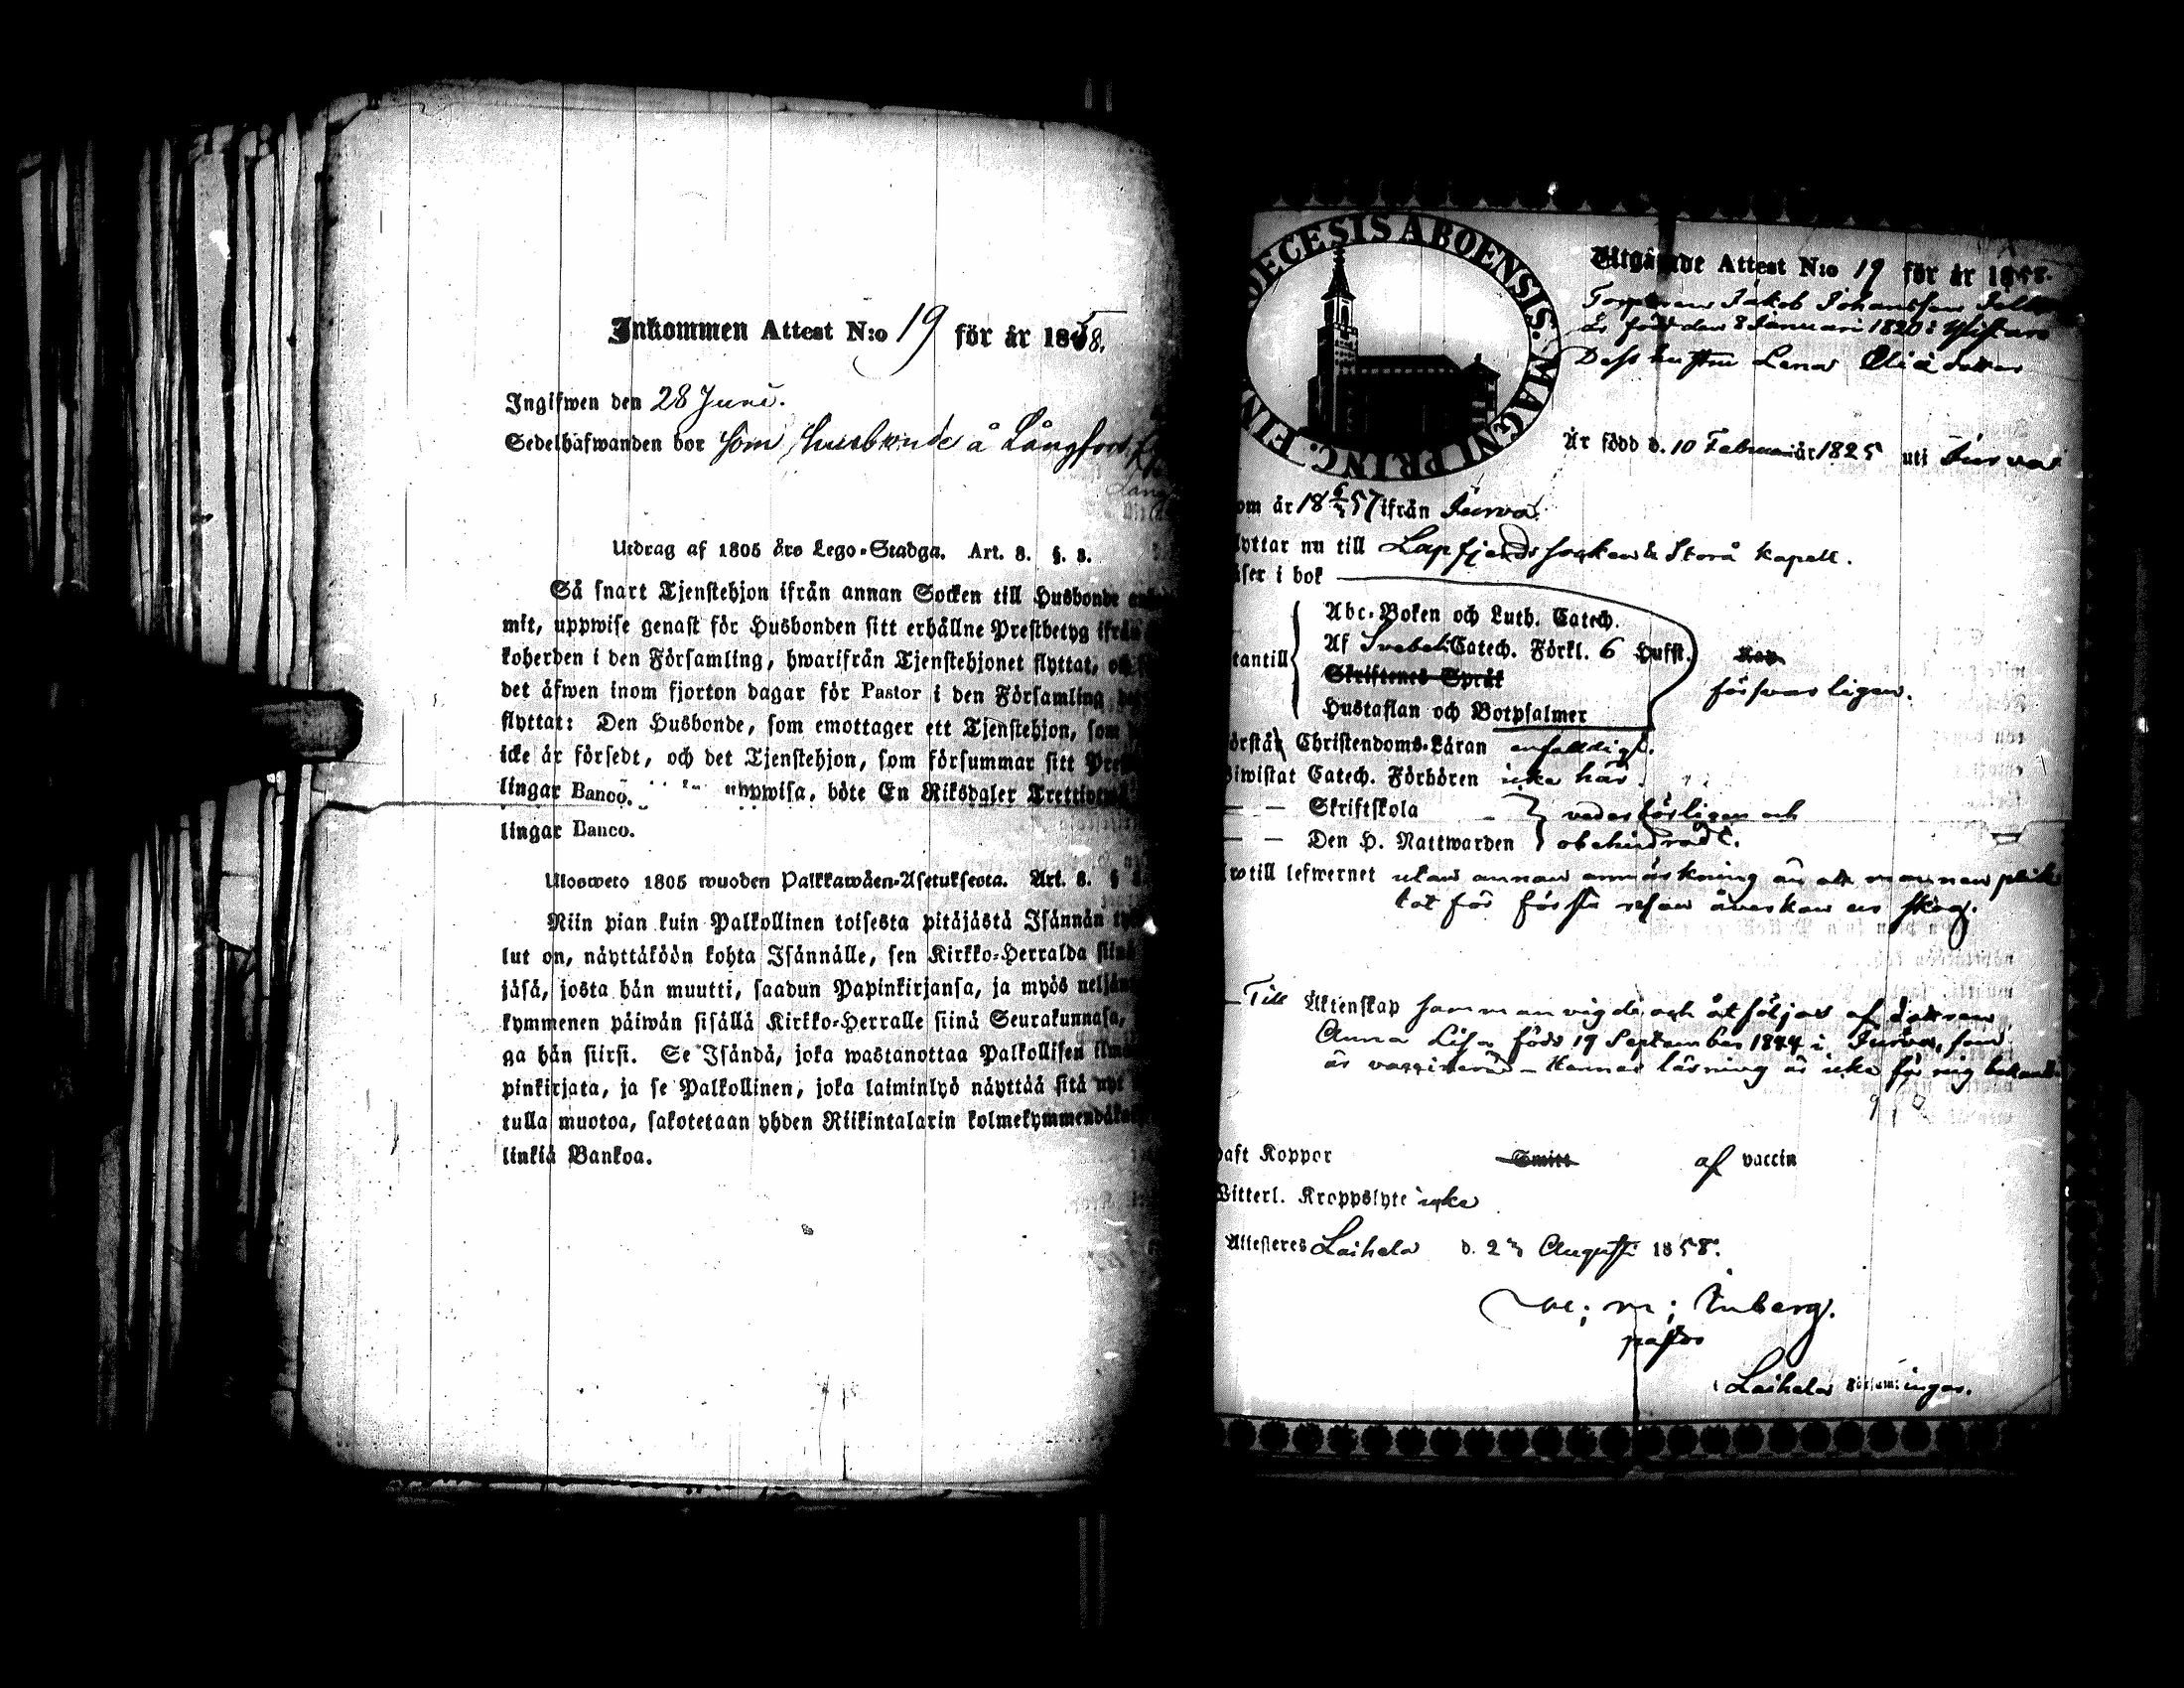 Inkommen Attest N:o 19 för år 1858.
Ingifwen den 28 Juni.
Sedelhafwanden bor som husbonde å Långfors
Utdrag af 1805 års Lego-Stadga. Art. 8. §. 8.
Så snart Tjenstehjon ifrån annan Socken till Husbonde
mit, uppwise genast för Husbonden sitt erhållne Prestbetyg ifrån
koherden i den Församling, hwarifrån Tjenstehjonet flyttat,
det äfwen inom fjorton dagar för Pastor i den Församling
flyttat: Den Husbonde, som emottager ett Tjenstehjon, som
icke är försedt, och det Tjenstehjon, som försummar sitt
lingar Banco. uppwisa, böte En Riksdaler
lingar Banco.
Ulosweto 1805 wuoden Palkkawäen-Asetuksesta. Art. 8. §
Niin pian kuin Palkollinen toisesta pitäjästä Isännän
lut on, näyttäköön kohta Isännälle, sen Kirkko-Herralda
jäsä, josta hän muutti, saadun Papinkirjansa, ja myös
kymmenen päiwän sisällä Kirkko-Herralle siinä Seurakunnasa,
ga hän siirsi. Se Isändä, joka wastanottaa Palkollisen
pinkirjata, ja se Palkollinen, joka laiminlyö näyttää sitä nyt
tulla muotoa, sakotetaan yhden Riikintalarin
linkiä Bankoa.
DECESIS ABOENSIS. MAGNI PRINC. FIN
Utgående Attest N:o 19 för år 1858.
Jakob Johansson
är född den 8 Januari 1820 i
Dess hustru Lena
Är född d. 10 Februari år 1825 uti Jurva
om år 18 57 ifrån Jurva
lyttar nu till Lapfjerds socken & Storå kapell.
äser i bok
Abc-Boken och Luth. Catech.
tantill Af Svebel. Catech. Förkl. 6 Hufst.
Skriftenes Språk
försvarligen.
Hustaflan och Botpsalmer
örstår Christendoms-Läran enfaldigt.
iwistat Catech. Förhören icke här.
— — Skriftskola vederbörligen och
— — Den H. Nattwarden obehindradt.
till lefwernet utan annan anmärkning än att mannen plik
tat för första resan åverkan en skog.
Till Äktenskap sammanvigde och åtföljas af dottren
Anna Lisa född 19 September 1844 i Jurva, som
är vaccinerad – Hennes läsning är icke för mig bekant
haft Koppor Smitt af vaccin
Witterl. Kroppslyte icke
Attesteras Laihela d. 2 Augusti 1858.
pastor
i Laihela Församlingar.